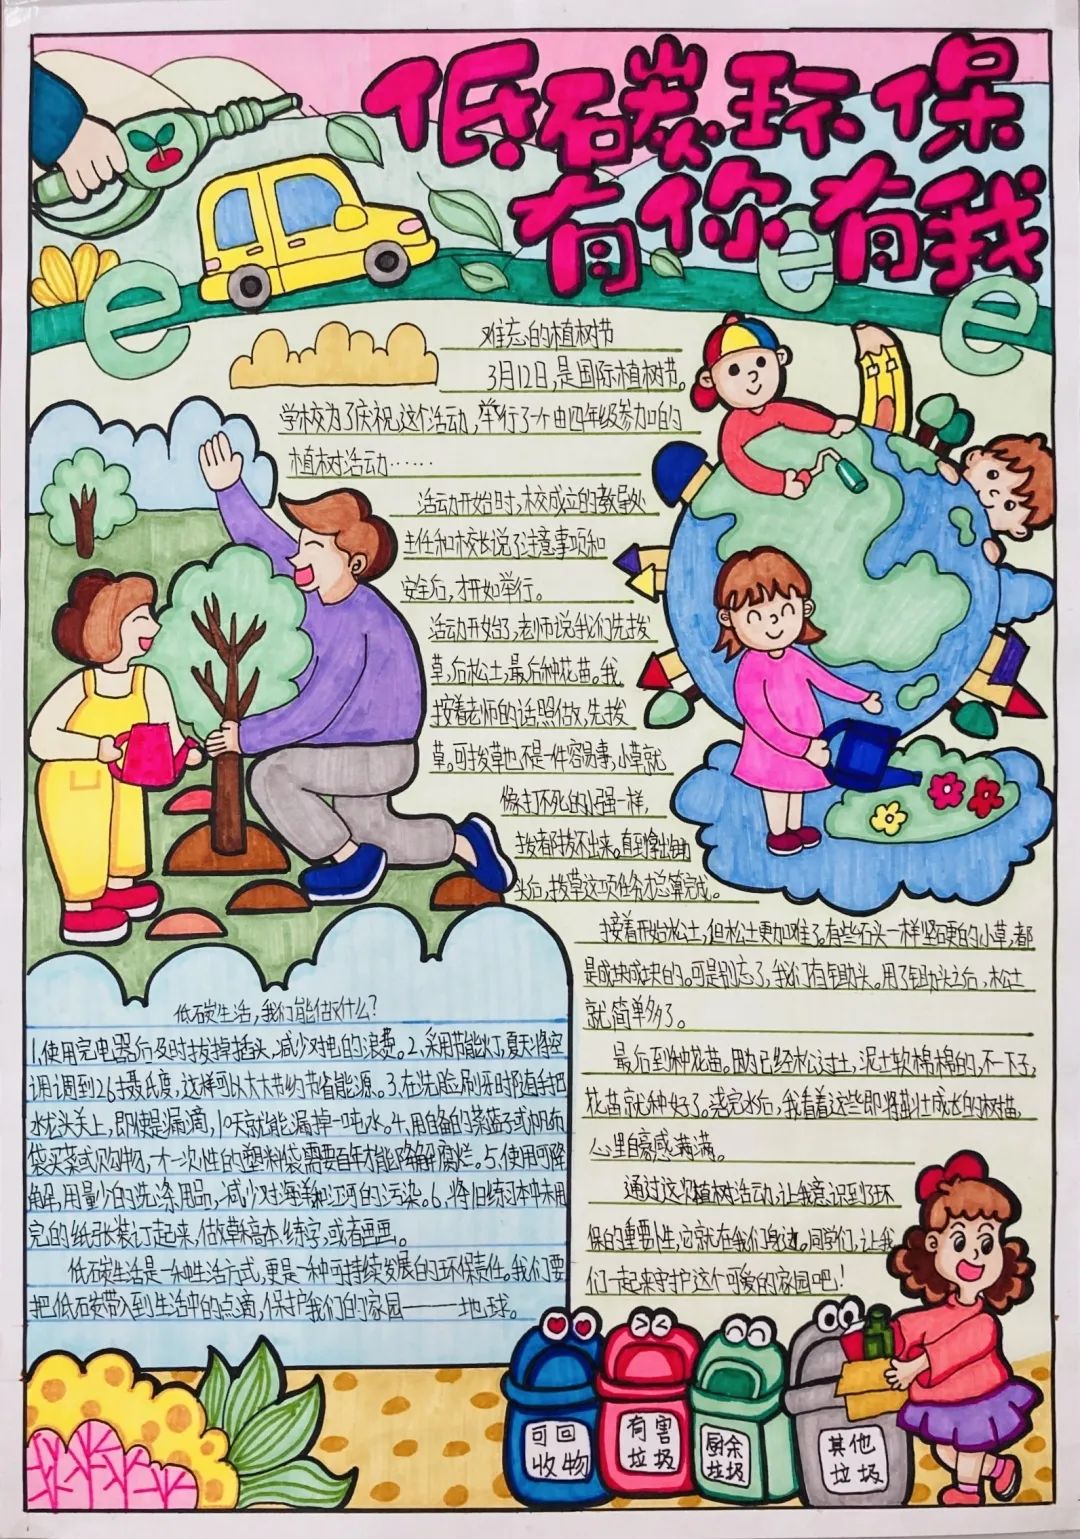 低碳环保
有你有我
e
e
e
难忘的植树节
3月12日,是国际植树节。
学校为了庆祝这个活动,举行了一个由四年级参加的
植树活动……
活动开始时,校成立的教导处
主任和校长说了注意事项和
安全后,才开始举行。
活动开始了,老师说我们先拔
草,后松土,最后种花苗。我
接着老师的话照做,先拔
草。可拔草也不是一件容易事,小草就
像打不死的小强一样,
拔都拔不出来。直到拿出锄
头后,拔草这项任务才总算完成。
接着开始松土,但松土更加难了。有些石头一样坚硬的小草,都
是成块成块的。可是别忘了,我们有锄头。用了锄头之后,松土
就简单多了。
最后到种花苗。因为已经松过土,泥土软棉棉的,不一下子,
花苗就种好了。浇完水后,我看着这些即将茁壮成长的树苗,
心里自豪感满满。
通过这次植树活动,让我意识到了环
保的重要性,它就在我们身边。同学们,让我
们一起来守护这个可爱的家园吧!
低碳生活,我们能做什么?
1.使用完电器后及时拔掉插头,减少对电的浪费。2.采用节能灯,夏天将空
调调到26摄氏度,这样可以大大节约节省能源。3.在洗脸刷牙时随手把
水龙头关上,即使是漏滴,10天就能漏掉一吨水。4.用自备的菜篮子或帆布
袋买菜或购物,一次性的塑料袋需要百年才能降解腐烂。5.使用可降
解,用量少的洗涤用品,减少对海洋和江河的污染。6.将旧练习本中未用
完的纸张装订起来,做草稿本、练字,或者画画。
低碳生活是一种生活方式,更是一种可持续发展的环保责任,我们要
把低碳带入到生活中的点滴,保护我们的家园——地球。
可回
收物
有害
垃圾
厨余
垃圾
其他
垃圾